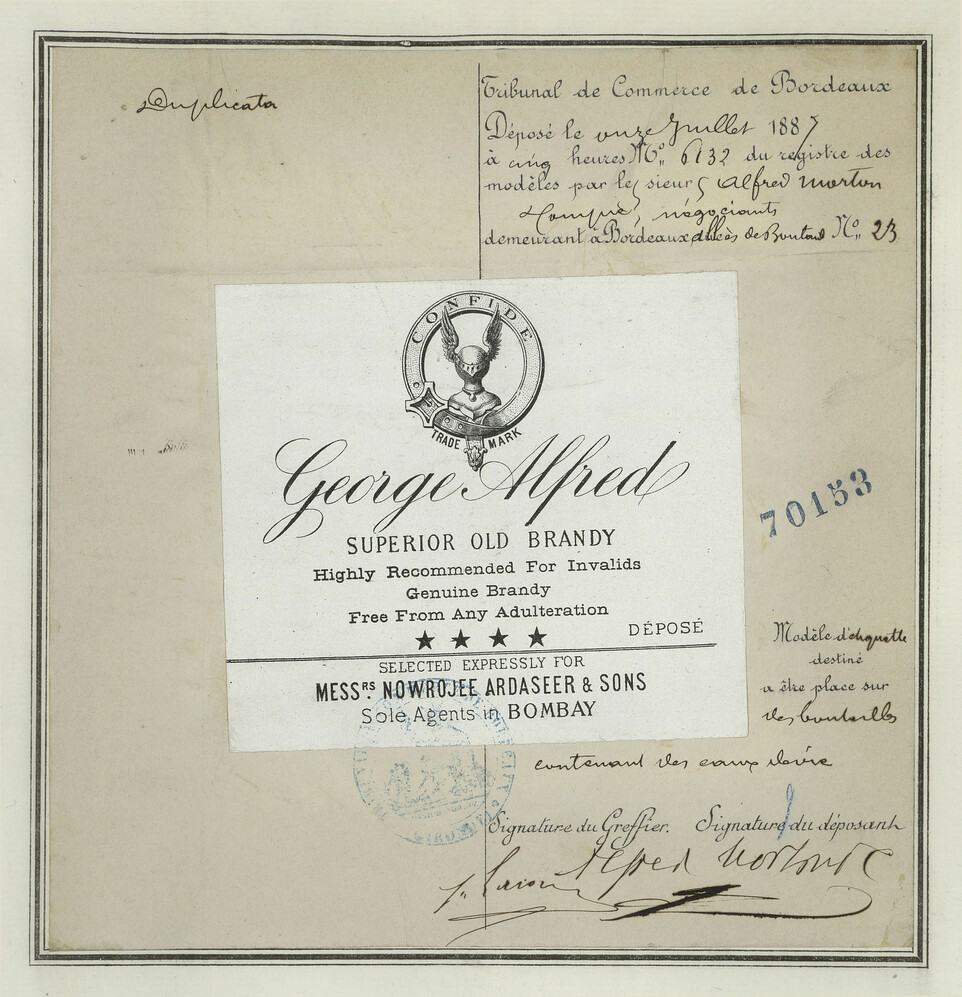 Duplicata
Tribunal de Commerce de Bordeaux
Déposé le onze Juillet 1887
à cinq heures No. 6132 du registre des
modèles par les sieurs Alfred Morton
négociants
demeurant à Bordeaux allées de Boutaut No. 23
CONFIDE
TRADE MARK
George Alfred
SUPERIOR OLD BRANDY
Highly Recommended For Invalids
Genuine Brandy
Free From Any Adulteration
★ ★ ★ ★
DÉPOSÉ
SELECTED EXPRESSLY FOR
MESSRS. NOWROJEE ARDASEER & SONS
Sole Agents in BOMBAY
70153
Modèle d'étiquette
destiné
a être place sur
des bouteilles
contenant des eaux de vie
GIRONDE
Signature du Greffier. Signature du déposant
Alfred Morton & C